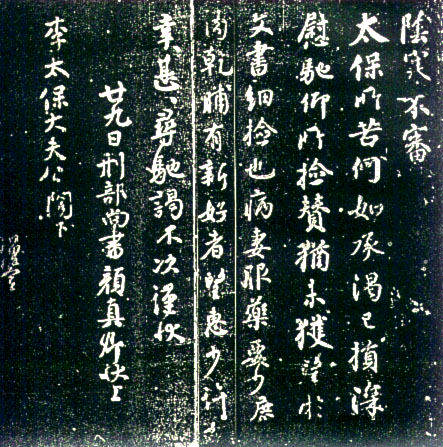 陰寒不審
太保所苦何如承渴已損深
慰馳仰所撿贊猶未獲望於
文書細撿也病妻服藥要少鹿
肉乾脯有新好者望惠少許
幸甚〻謹馳謁不次謹狀
廿九日刑部尚書顏真卿狀上
李太保大夫公閣下